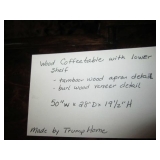 Wood Coffeetable with lower
shelf
- wood apron detail
- burl wood veneer detail
50"W x 28"D x 19½"H
Made by Trump Home